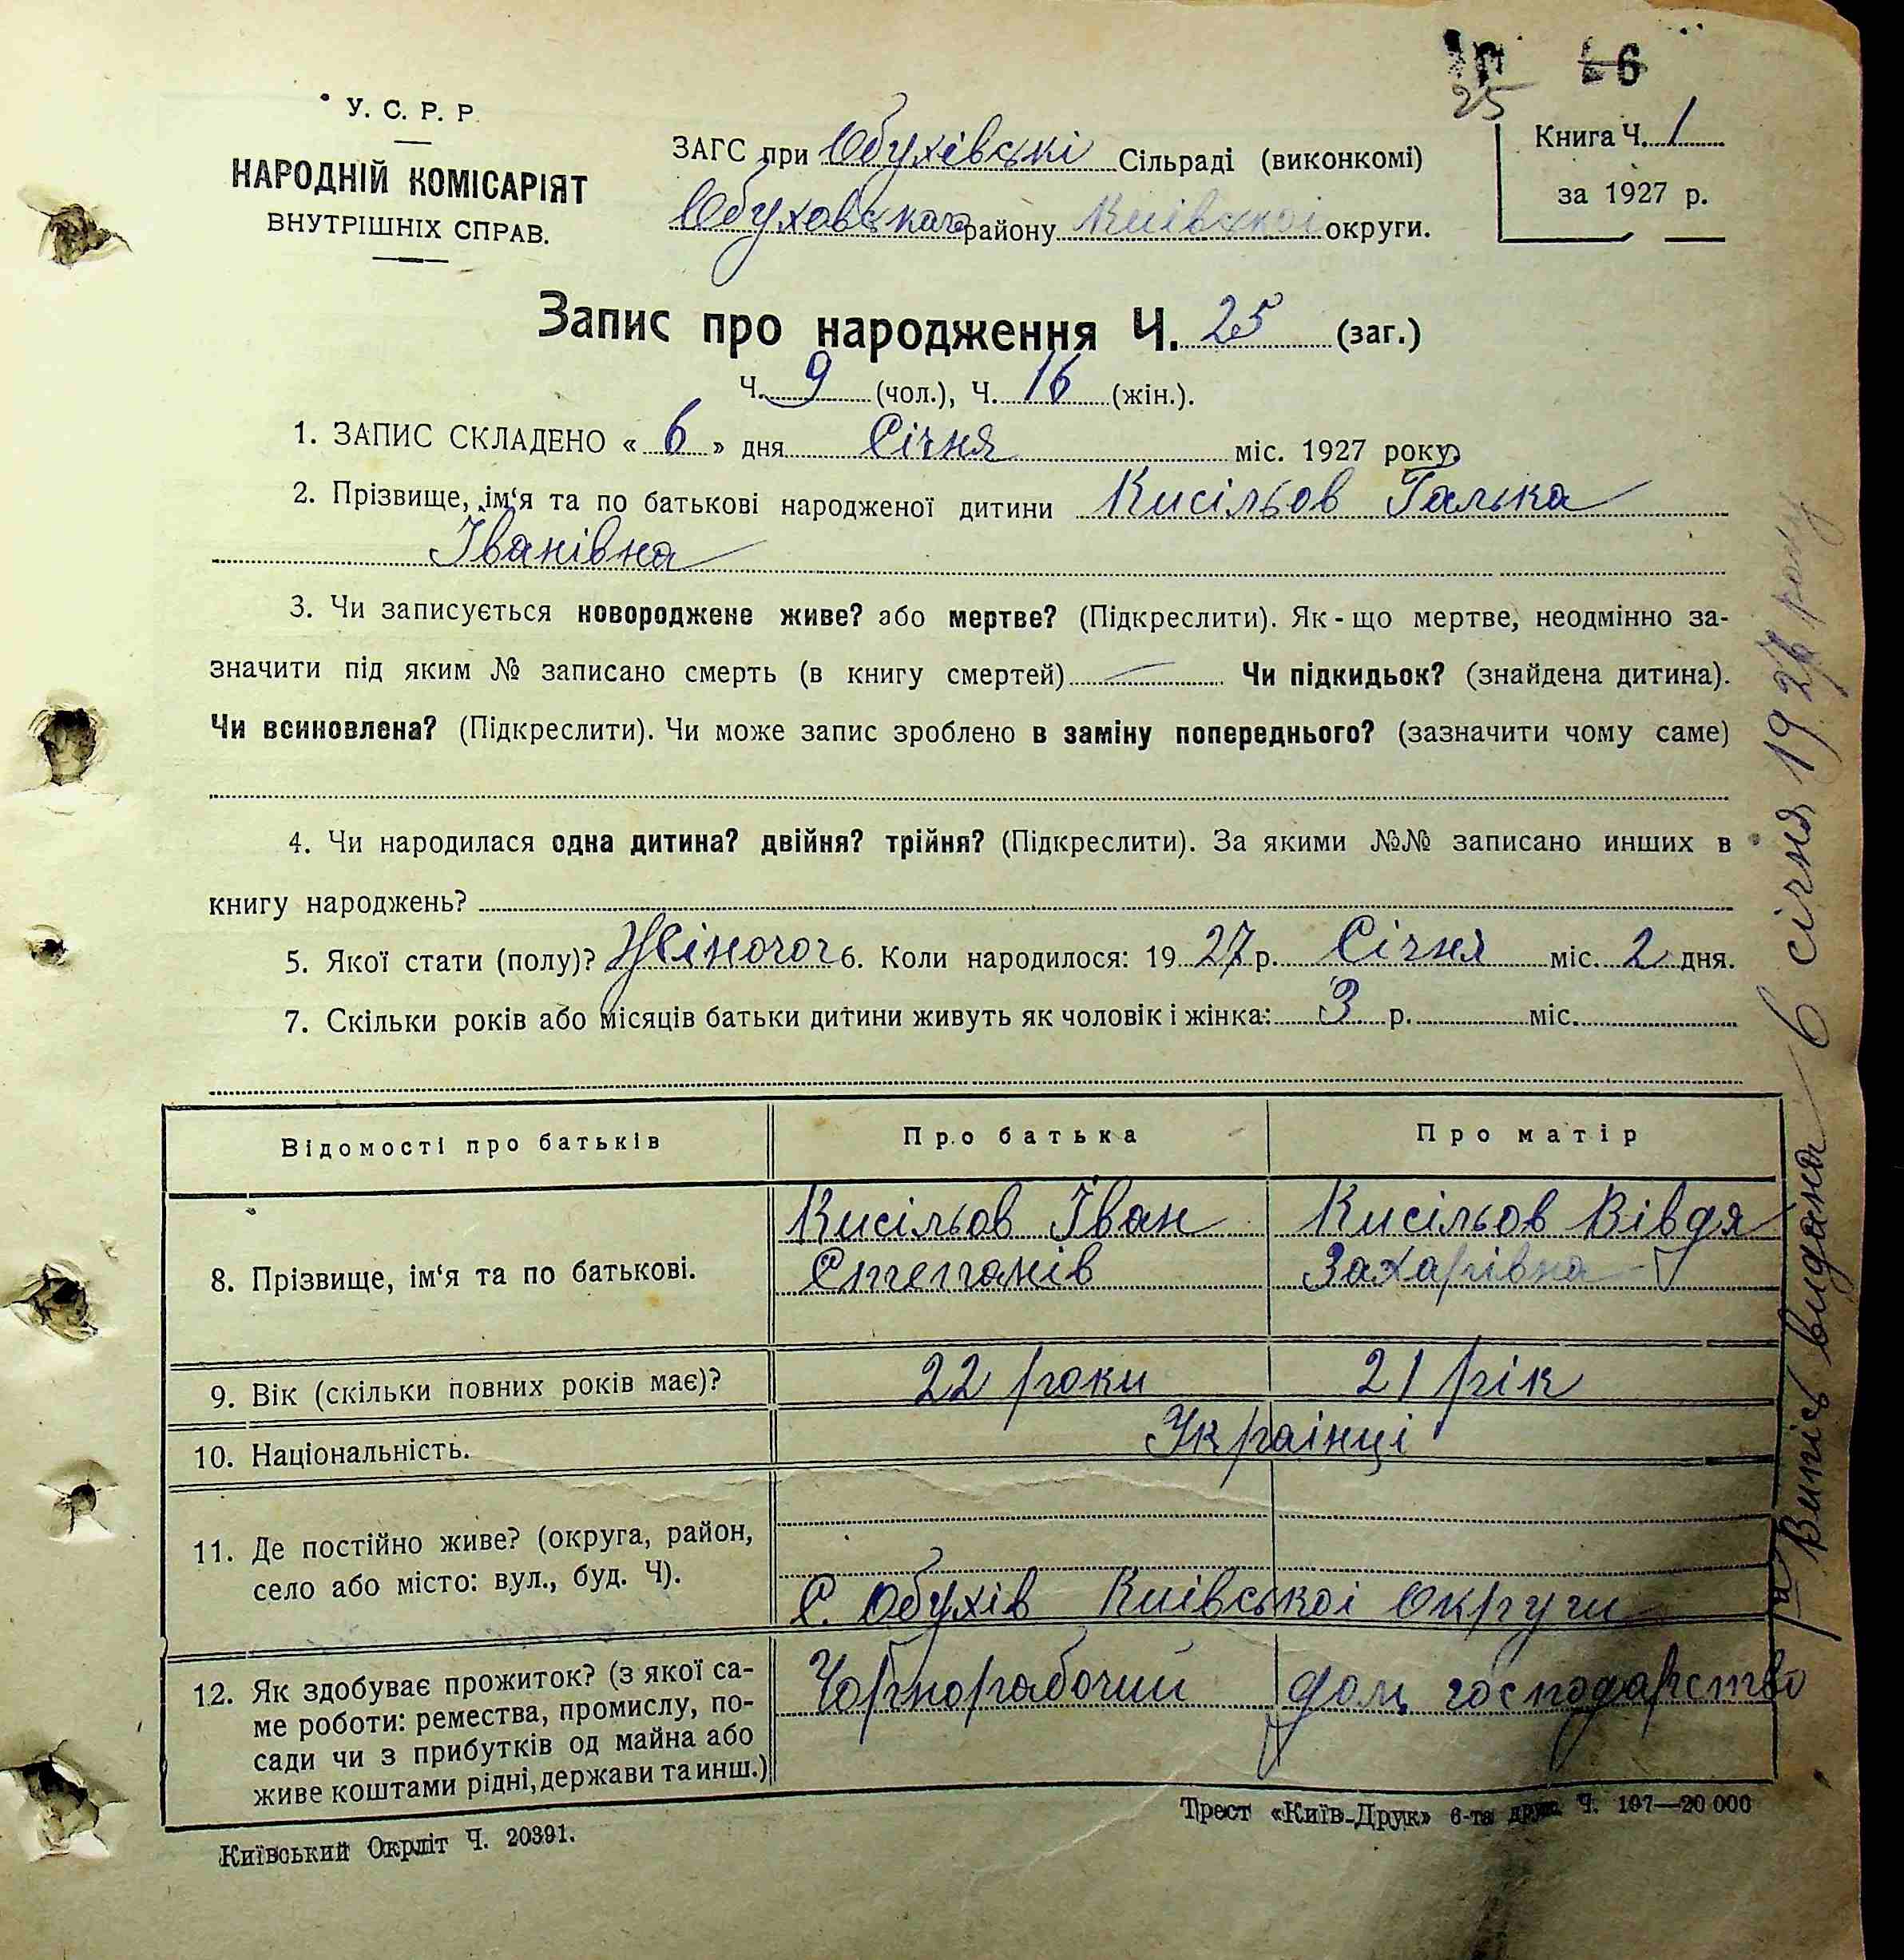 25
6
У. С. Р. Р.
НАРОДНІЙ КОМІСАРІЯТ
ВНУТРІШНІХ СПРАВ.
ЗАГС при Обухівські Сільраді (виконкомі)
Обуховскаго району Київскої округи.
Книга Ч. 1
за 1927 р.
Запис про народження Ч. 25 (заг.)
Ч. 9 (чол.), Ч. 16 (жін.).
1. ЗАПИС СКЛАДЕНО « 6 » дня Січня міс. 1927 року
2. Прізвище, ім‘я та по батькові народженої дитини Кисільов Галька
Іванівна
3. Чи записується новороджене живе? або мертве? (Підкреслити). Як - що мертве, неодмінно за-
значити під яким № записано смерть (в книгу смертей) — Чи підкидьок? (знайдена дитина).
Чи всиновлена? (Підкреслити). Чи може запис зроблено в заміну попереднього? (зазначити чому саме)
4. Чи народилася одна дитина? двійня? трійня? (Підкреслити). За якими №№ записано инших в
книгу народжень?
5. Якої стати (полу)? Жіночої 6. Коли народилося: 19 27 р. Січня міс. 2 дня.
7. Скільки років або місяців батьки дитини живуть як чоловік і жінка: 3 р. міс.
Відомості про батьків Про батька Про матір
8. Прізвище, ім‘я та по батькові.
Кисільов Іван
Степанів
Кисільов Вівдя
Захарівна
9. Вік (скільки повних років має)? 22 роки 21 рік
10. Національність. Українці
11. Де постійно живе? (округа, район,
село або місто: вул., буд. Ч).
С. Обухів Київської Округи
12. Як здобуває прожиток? (з якої са-
ме роботи: ремества, промислу, по-
сади чи з прибутків од майна або
живе коштами рідні, держави та инш.)
Чорнорабочий
дом господарство
Київський Окрліт Ч. 20391.
Трест «Київ-Друк» 6-та друк. Ч. 197—20 000
Випись видана 6 січня 1927 року